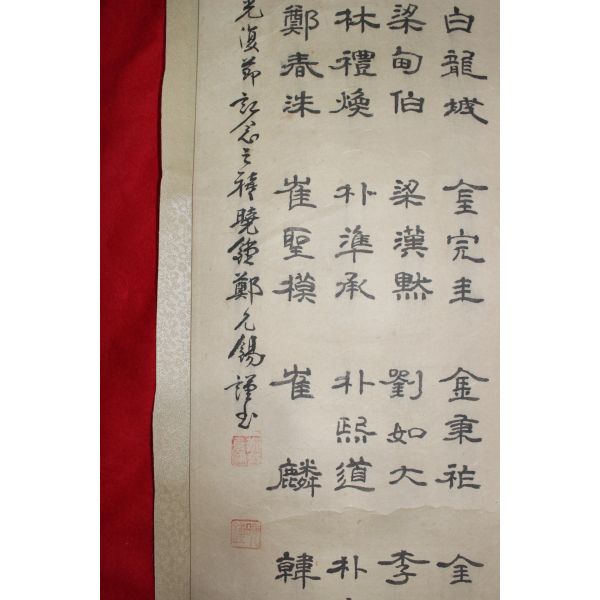 白龍城 金完圭 金秉祚 金
梁甸伯 梁漢默 劉如大 李
林禮煥 朴準承 朴熙道 朴
鄭春洙 崔聖模 崔麟 韓
光復節記念之 曉鐘鄭允錫謹書